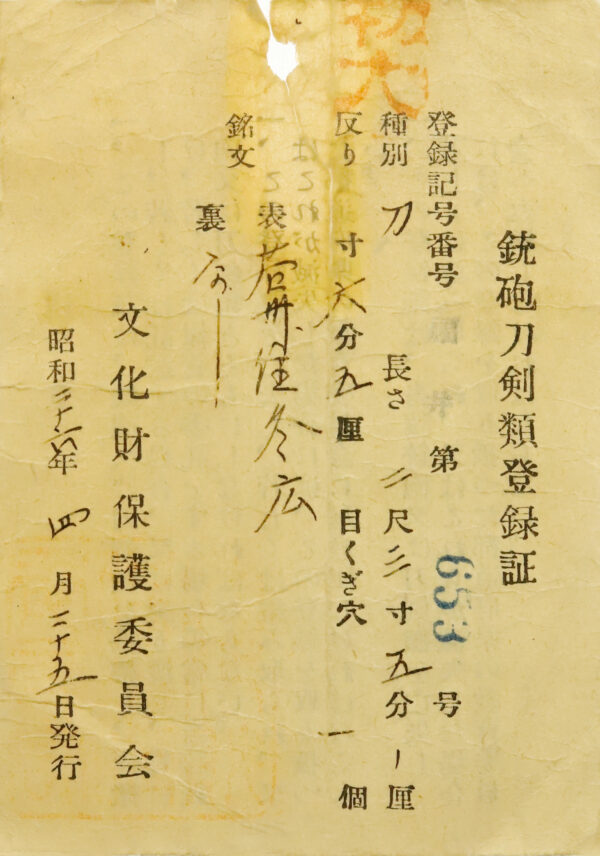 銃砲刀剣類登録証
登録記号番号 第 653 号
種別 刀 長さ 二尺三寸五分 厘
反り 寸六分五厘 目くぎ穴 一個
銘文 表 若州住冬広
裏 なし
文化財保護委員会
昭和二十六年四月二十五日発行